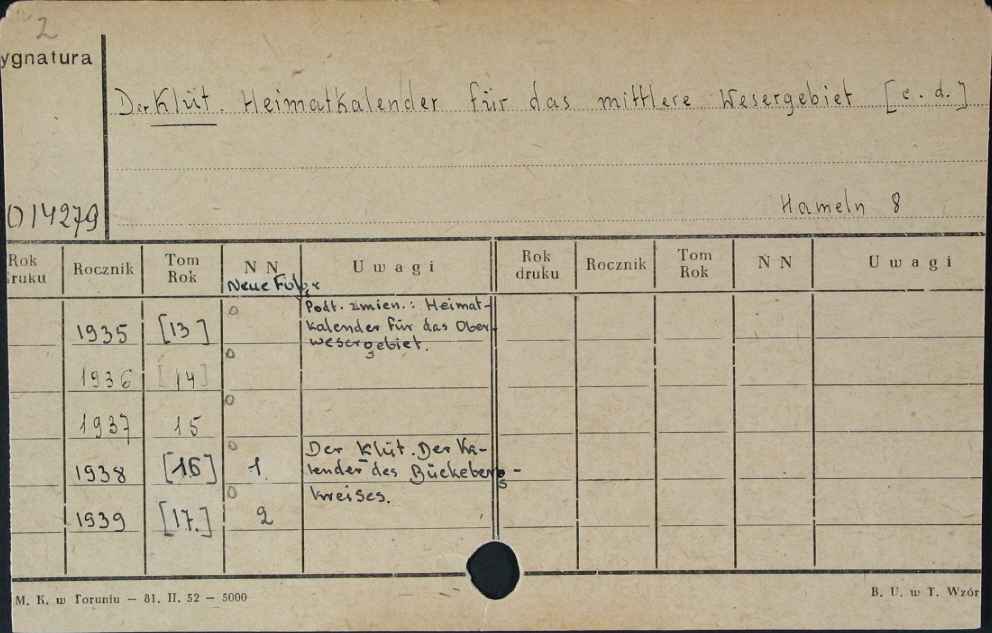 2
ygnatura
Der Klüt. Heimatkalender für das mittlere Wesergebiet [c. d.]
Hameln 8
014279
Rok druku Rocznik Tom Rok N N U w a g i Rok druku Rocznik Tom Rok N N U w a g i
Neue Folge
Podt. zmien.: Heimat-
1935 [13] 0 kalender für das Ober-
wesergebiet.
1936 [14] 0
1937 15 0
Der Klüt. Der Ka-
1938 [16] 0 1. lender des Bückeberg-
kreises.
1939 [17.] 0 2
M. K. w Toruniu — 81. II. 52 — 5000 B. U. w T. Wzór